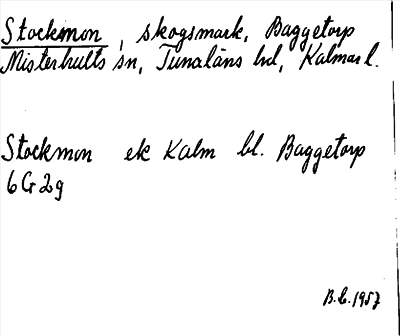 Stockmon, skogsmark, Baggetorp
Misterhults sn, Tunaläns hd, Kalmar l.
Stockmon ek Kalm bl. Baggetorp
6 G 2 g
B.L. 1957